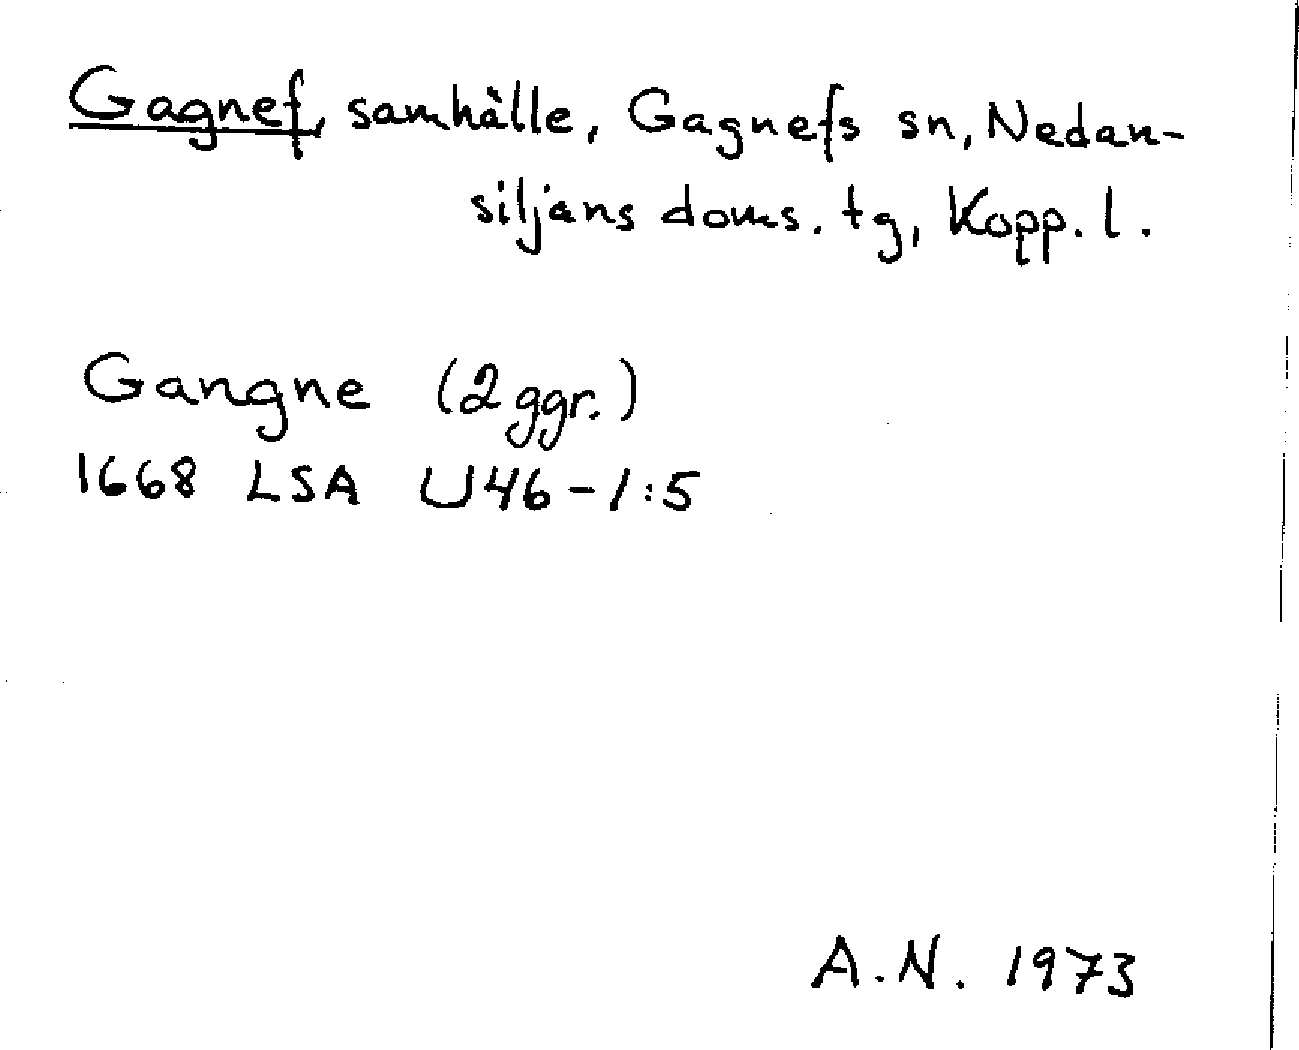 Gagnef, samhälle, Gagnefs sn, Nedan-
siljans doms. tg, Kopp. l.
Gangne (2 ggr.)
1668 LSA U46-1:5
A.N. 1973